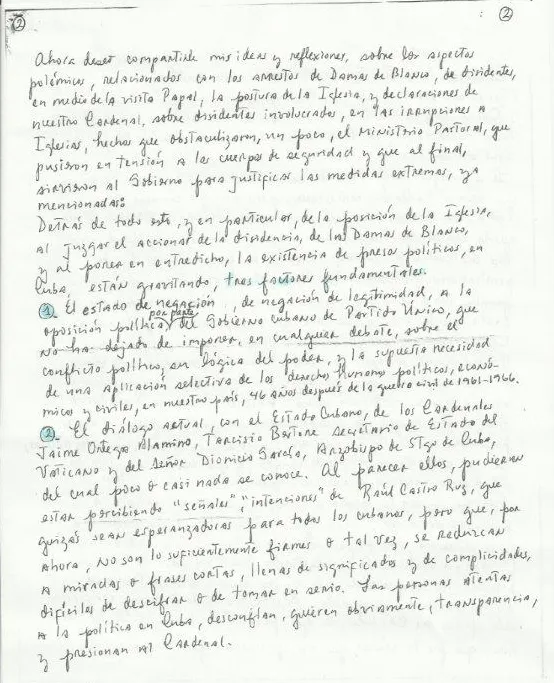 ② ②
Ahora deseo compartirle mis ideas y reflexiones, sobre los aspectos
polémicos, relacionados con los arrestos de Damas de Blanco, de disidentes,
en medio de la visita Papal, la postura de la Iglesia, y declaraciones de
nuestro Cardenal, sobre disidentes involucrados, en las irrupciones a
Iglesias, hechos que obstaculizaron, un poco, el Ministerio Pastoral, que
pusieron en tensión a los cuerpos de seguridad y que al final,
sirvieron al Gobierno para justificar las medidas extremas, ya
mencionadas:
Detrás de todo esto, y en particular, de la posición de la Iglesia,
al juzgar el accionar de la disidencia, de las Damas de Blanco,
y al poner en entredicho, la existencia de presos políticos, en
Cuba, están gravitando, tres factores fundamentales.
① El estado de negación, de negación de legitimidad, a la
oposición política por parte del Gobierno cubano de Partido Único, que
no ha dejado de imponer, en cualquier debate, sobre el
conflicto político, su lógica del poder, y la supuesta necesidad
de una aplicación selectiva de los derechos humanos políticos, econó-
micos y civiles, en nuestro país, 46 años después de la guerra civil de 1961-1966.
② El diálogo actual, con el Estado Cubano, de los Cardenales
Jaime Ortega Alamino, Tarcisio Bertone secretario de Estado del
Vaticano y del señor Dionicio García, Arzobispo de Stgo de Cuba,
del cual poco o casi nada se conoce. Al parecer ellos, pudieran
estar percibiendo "señales", "intenciones" de Raúl Castro Ruz, que
quizás sean esperanzadoras para todos los cubanos, pero que, por
ahora, no son lo suficientemente firmes o tal vez, se reduzcan
a miradas o frases cortas, llenas de significados y de complicidades,
difíciles de descifrar o de tomar en serio. Las personas atentas
a la política en Cuba, desconfían, quieren obviamente, transparencia,
y presionan al Cardenal.